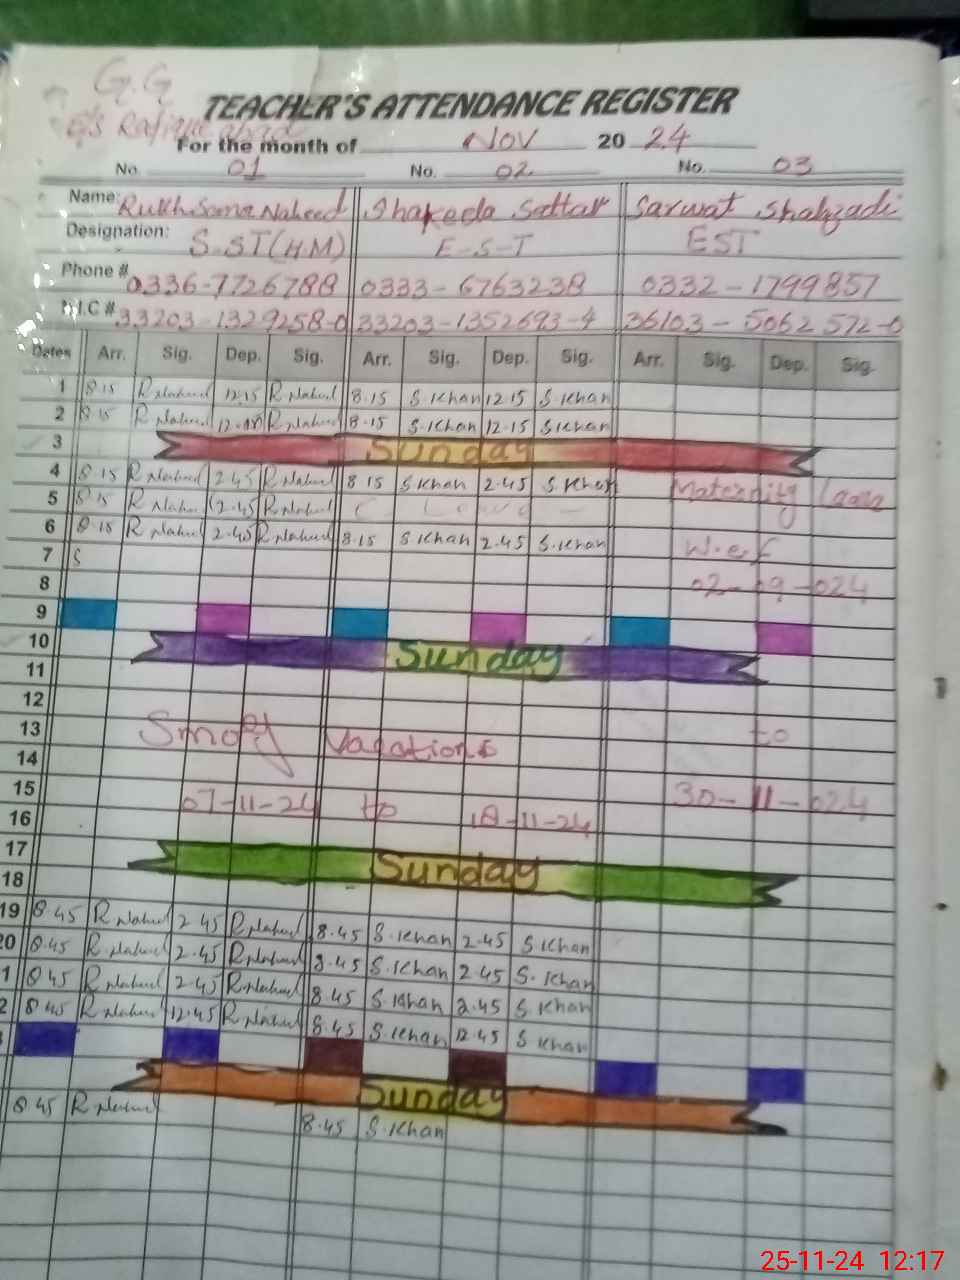 G.G
E/S Rafique abad
TEACHER'S ATTENDANCE REGISTER
For the month of Nov 20 24
No. 01 No. 02 No. 03
Name: RukhSana Naheed Shakeela Sattar Sarwat Shahzadi
Designation: S.ST(H.M) E-S-T EST
Phone # 0336-7726788 0333-6763238 0332-1799857
N.I.C # 33203-1329258-0 33203-1352693-4 36103-5062572-0
Dates Arr. Sig. Dep. Sig. Arr. Sig. Dep. Sig. Arr. Sig. Dep. Sig.
1 8.15 R Naheed 12.15 R Naheed 8.15 S.Khan 12.15 S.Khan
2 8.15 R Naheed R Naheed 8.15 S.Khan 12.15 S.Khan
3 Sunday
4 8.15 R Naheed 2.45 R Naheed 8.15 S.Khan 2.45 S.Khan Maternity Leave
5 8.15 R Naheed 2.45 R Naheed C Leave
6 8.15 R Naheed 2.45 R Naheed 8.15 S.Khan 2.45 S.Khan W.e.f
7 8
8 02-09-024
9
10 Sunday
11
12
13 Smog Vacations to
14
15 07-11-24 to 18-11-24 30-11-024
16
17 Sunday
18
19 8.45 R Naheed 2.45 R Naheed 8.45 S.Khan 2.45 S Khan
20 8.45 R Naheed 2.45 R Naheed 8.45 S.Khan 2.45 S.Khan
1 8.45 R Naheed 2.45 R.Naheed 8.45 S.Khan 2.45 S Khan
2 8.45 R Naheed 12.45 R Naheed 8.45 S.Khan 12.45 S Khan
Sunday
8.45 R Naheed 8.45 S.Khan
25-11-24 12:17